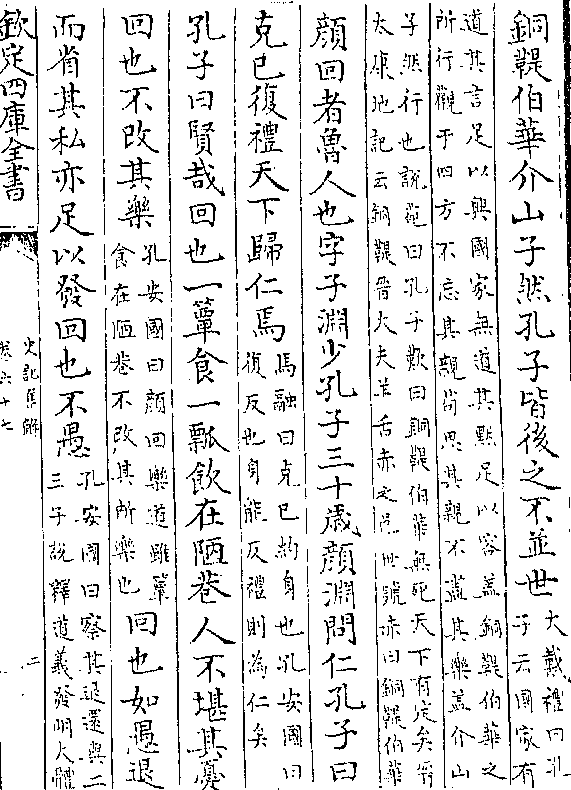 銅鞮伯華介山子然孔子皆後之不並世大戴禮曰孔子云國家有
道其言足以興國家無道其默足以容蓋銅鞮伯華之所行觀于四方不忘其親苟思其親不盡其樂蓋介山
子然行也說苑曰孔子歎曰銅鞮伯華無死天下有定矣晉太康地記云銅鞮晉大夫羊舌赤之邑世號赤曰銅鞮伯華
顏回者魯人也字子淵少孔子三十歲顏淵問仁孔子曰
克己復禮天下歸仁焉馬融曰克己約身也孔安國曰復反也身能反禮則為仁矣
孔子曰賢哉回也一簞食一瓢飲在陋巷人不堪其憂
回也不改其樂孔安國曰顏回樂道雖簞食在陋巷不改其所樂也回也如愚退
而省其私亦足以發回也不愚孔安國曰察其退還與二三子說釋道義發明大體
欽定四庫全書
史記集解
卷六十七
二